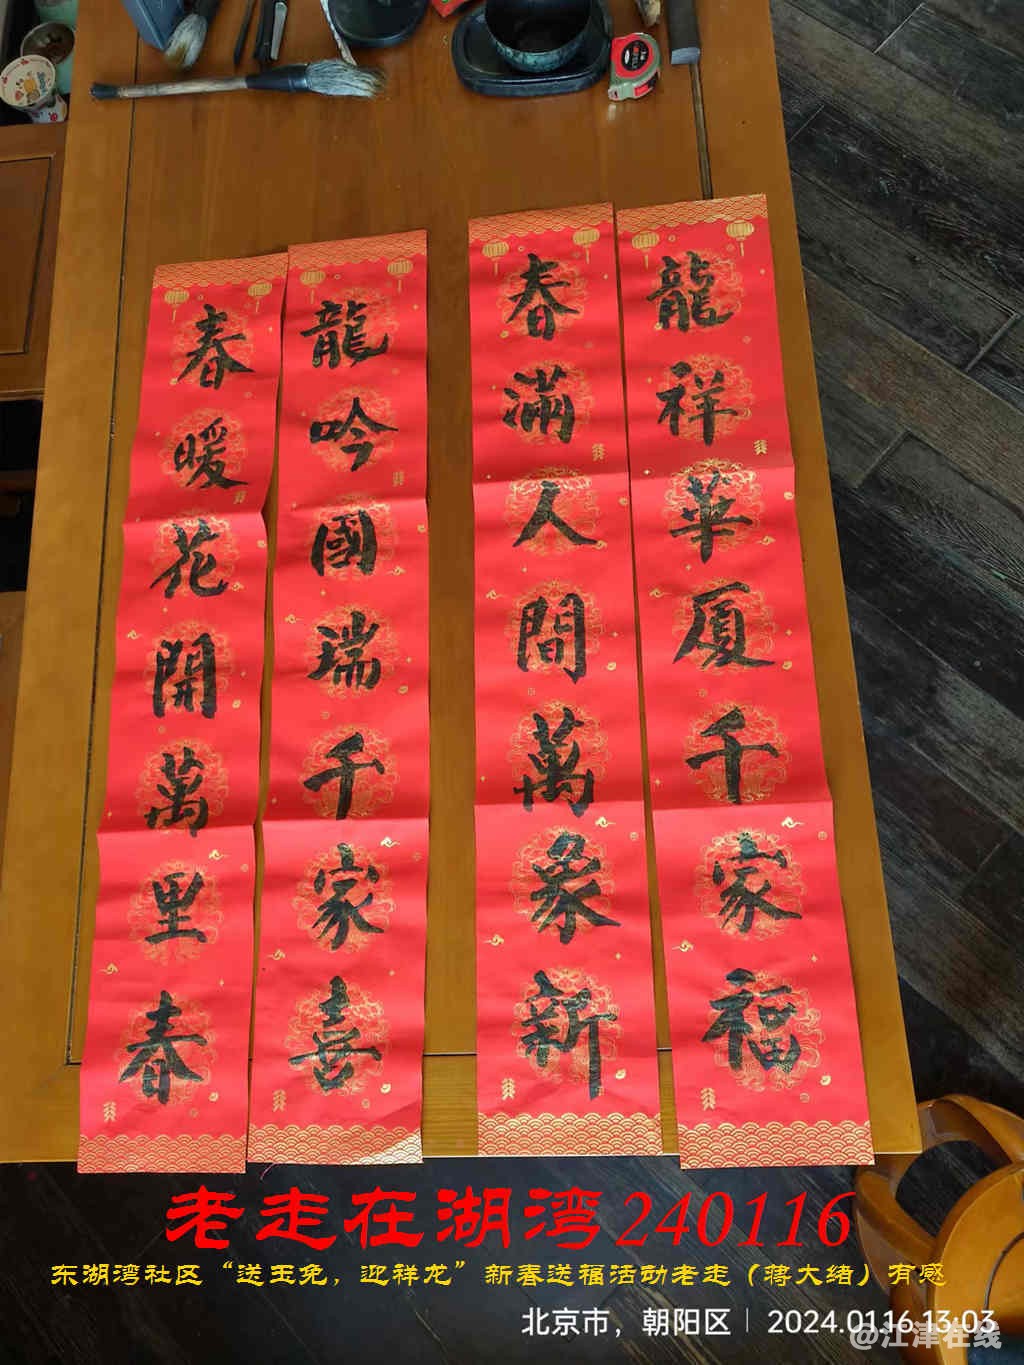 龍祥華厦千家福
春滿人間萬象新
龍吟國瑞千家喜
春暖花開萬里春
老走在湖湾240116
东湖湾社区“送玉兔，迎祥龙”新春送福活动老走（蒋大绪）有感
北京市，朝阳区 | 2024.01.16 13:03
@江津在线